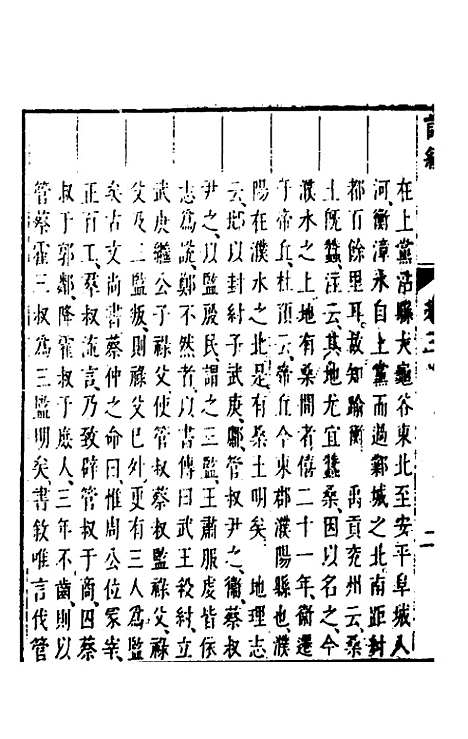 在上黨沾縣大黽谷東北至安平阜城入
河衡漳水自上黨而過鄴城之北南距紂
都百餘里耳故知踰衡 禹貢兗州云桑
土既蠶注云其地尤宜蠶桑因以名之今
濮水之上地有桑間者僖三十一年衞遷
于帝丘杜預云帝丘今東郡濮陽縣也濮
陽在濮水之北是有桑土明矣 地理志
云邶以封紂子武庚鄘管叔尹之衞蔡叔
尹之以監殷民謂之三監王肅服虔皆依
志爲說鄭不然者以書傳曰武王殺紂立
武庚繼公子祿父使管叔蔡叔監祿父祿
父及三監叛則祿父已外更有三人爲監
矣古文尚書蔡仲之命曰惟周公位冢宰
正百工羣叔流言乃致辟管叔于商囚蔡
叔于郭鄰降霍叔于庶人三年不齒則以
管蔡霍三叔爲三監明矣書敘唯言伐管
卷三
二